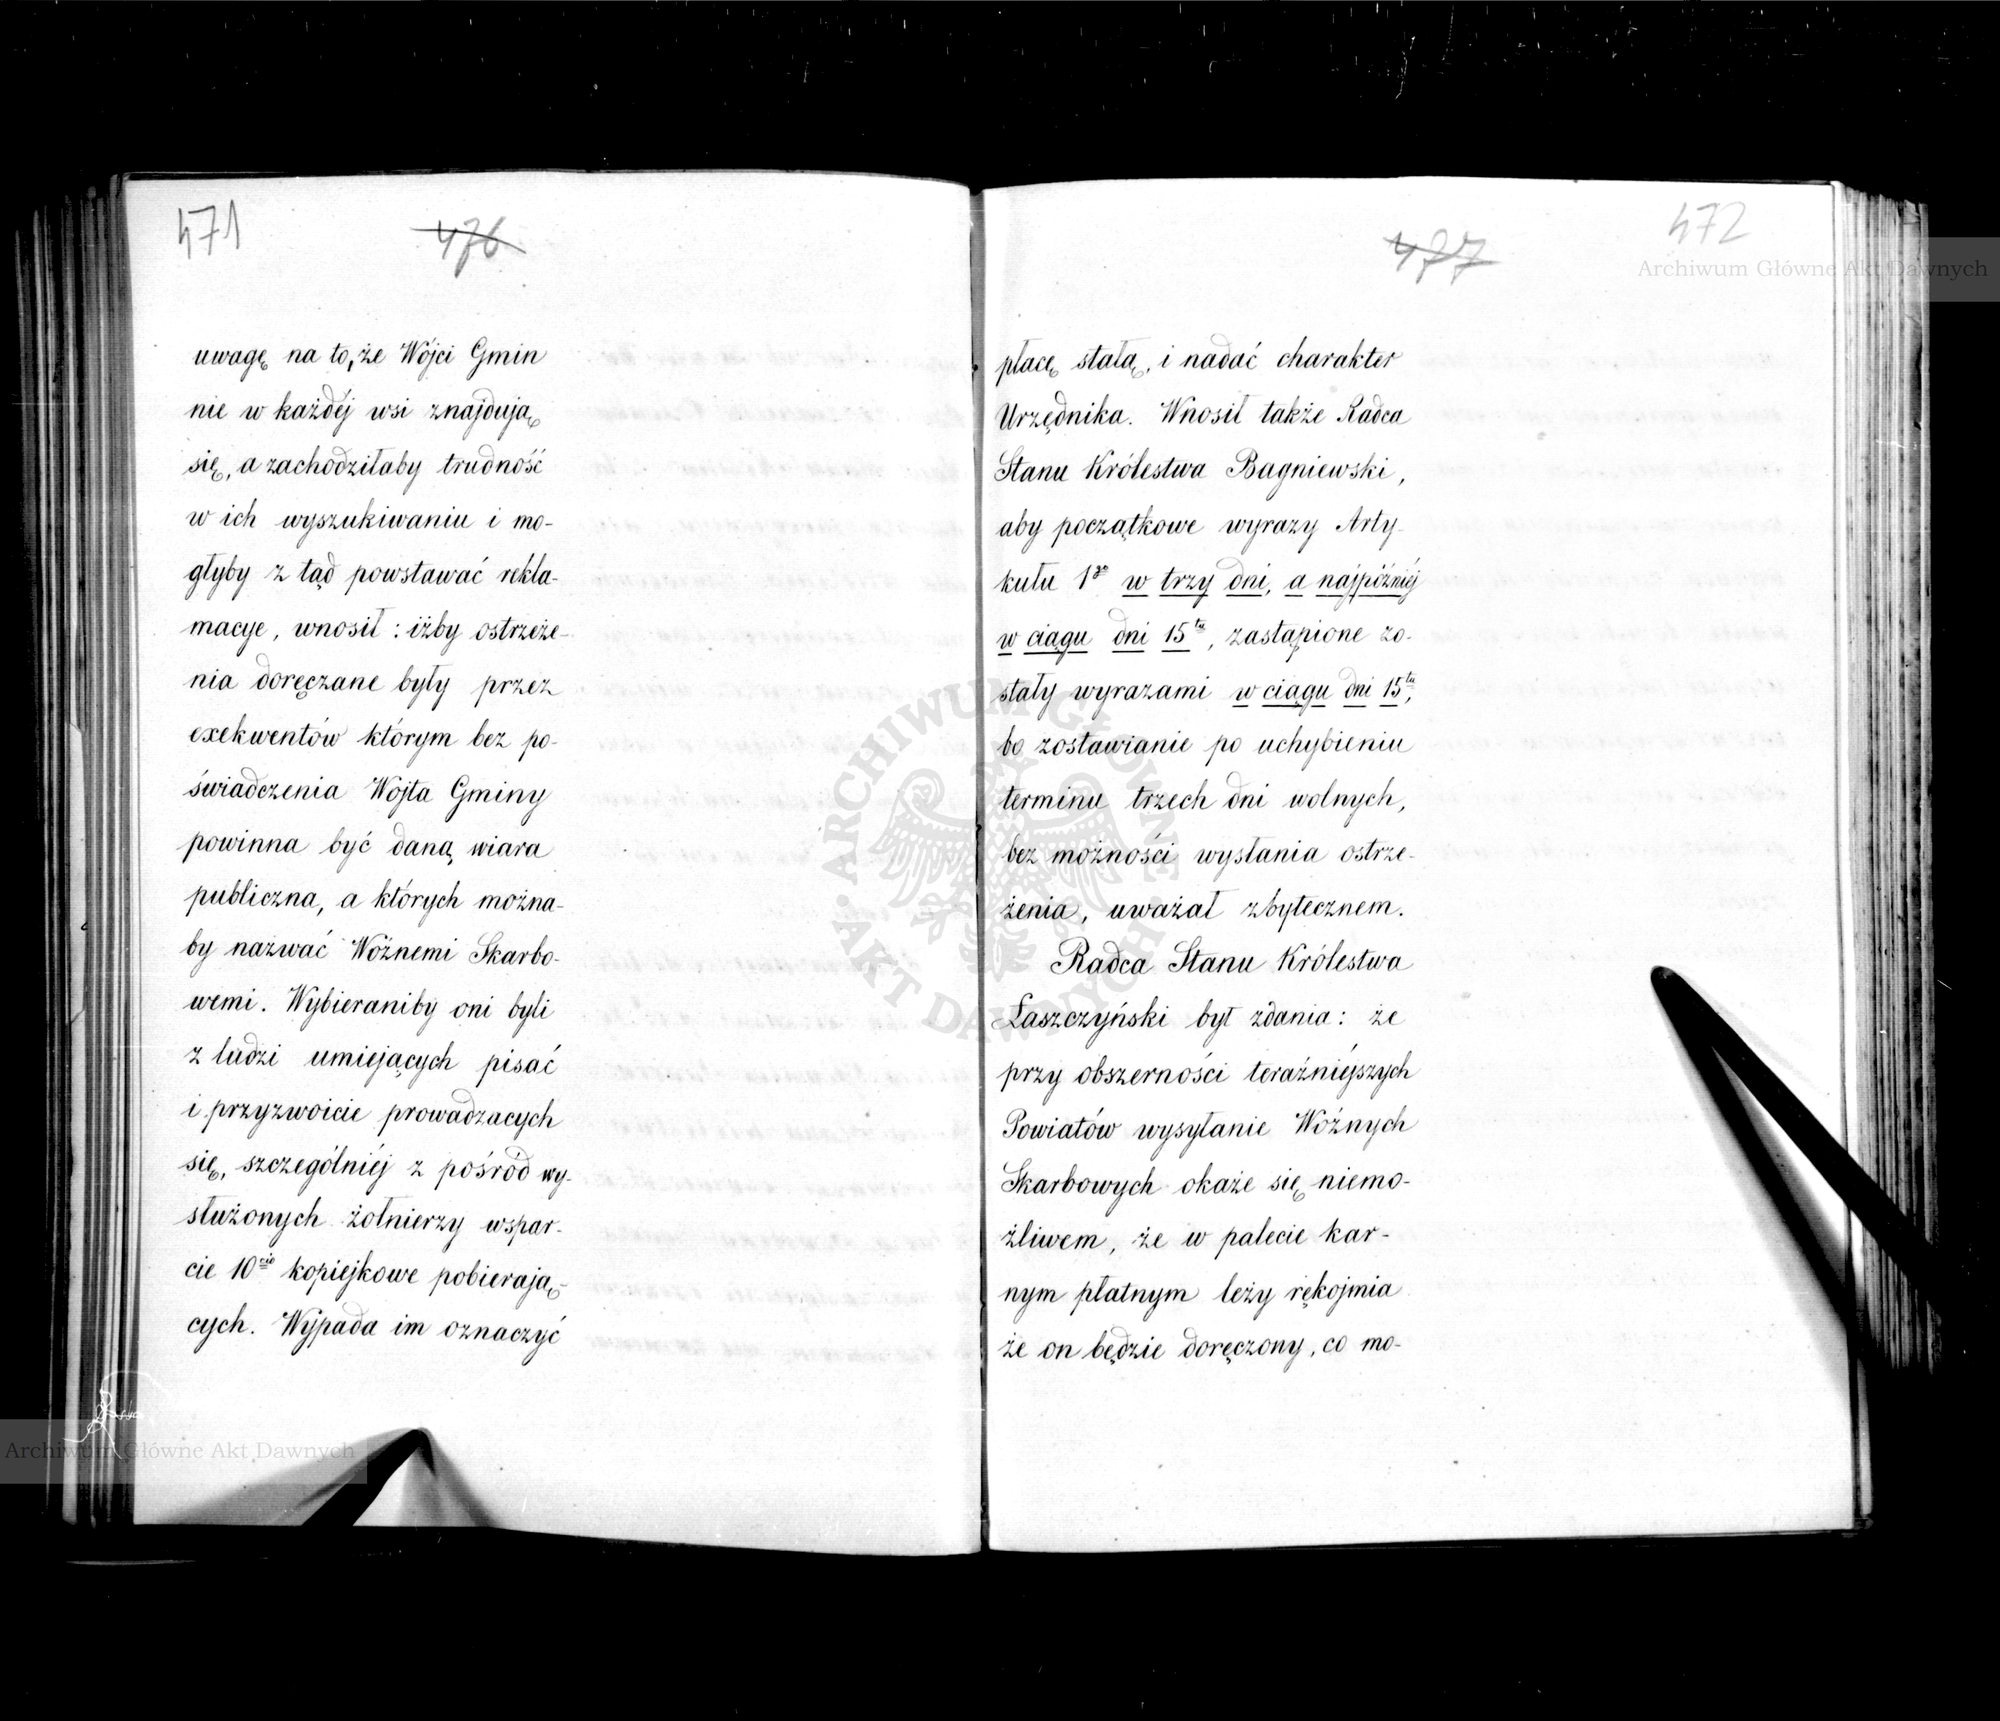 471
476
uwagę na to, że Wójci Gmin
nie w każdéj wsi znajdują
się, a zachodziłaby trudność
w ich wyszukiwaniu i mo-
głyby z tąd powstawać rekla-
macye, wnosił: iżby ostrzeże-
nia doręczane były przez
exekwentów którym bez po-
świadczenia Wójta Gminy
powinna być daną wiara
publiczna, a których można-
by nazwać Woźnemi Skarbo-
wemi. Wybieraniby oni byli
z ludzi umiejących pisać
i przyzwoicie prowadzacych
się, szczególniéj z pośród wy-
służonych żołnierzy wspar-
cie 10cio kopiejkowe pobierają-
cych. Wypada im oznaczyć
477
472
płacę stałą, i nadać charakter
Urzędnika. Wnosił także Radca
Stanu Królestwa Bagniewski,
aby początkowe wyrazy Arty-
kułu 1go w trzy dni, a najpóźniéj
w ciągu dni 15tu, zastąpione zo-
stały wyrazami w ciągu dni 15tu,
bo zostawianie po uchybieniu
terminu trzech dni wolnych,
bez możności wysłania ostrze-
żenia, uważał zbytecznem.
Radca Stanu Królestwa
Łaszczyński był zdania: że
przy obszerności teraźniéjszych
Powiatów wysyłanie Woźnych
Skarbowych okaże się niemo-
żliwem, że w palecie kar-
nym płatnym leży rękojmia
że on będzie doręczony, co mo-
Archiwum Główne Akt Dawnych
ARCHIWUM GŁÓWNE AKT DAWNYCH
Archiwum Główne Akt Dawnych